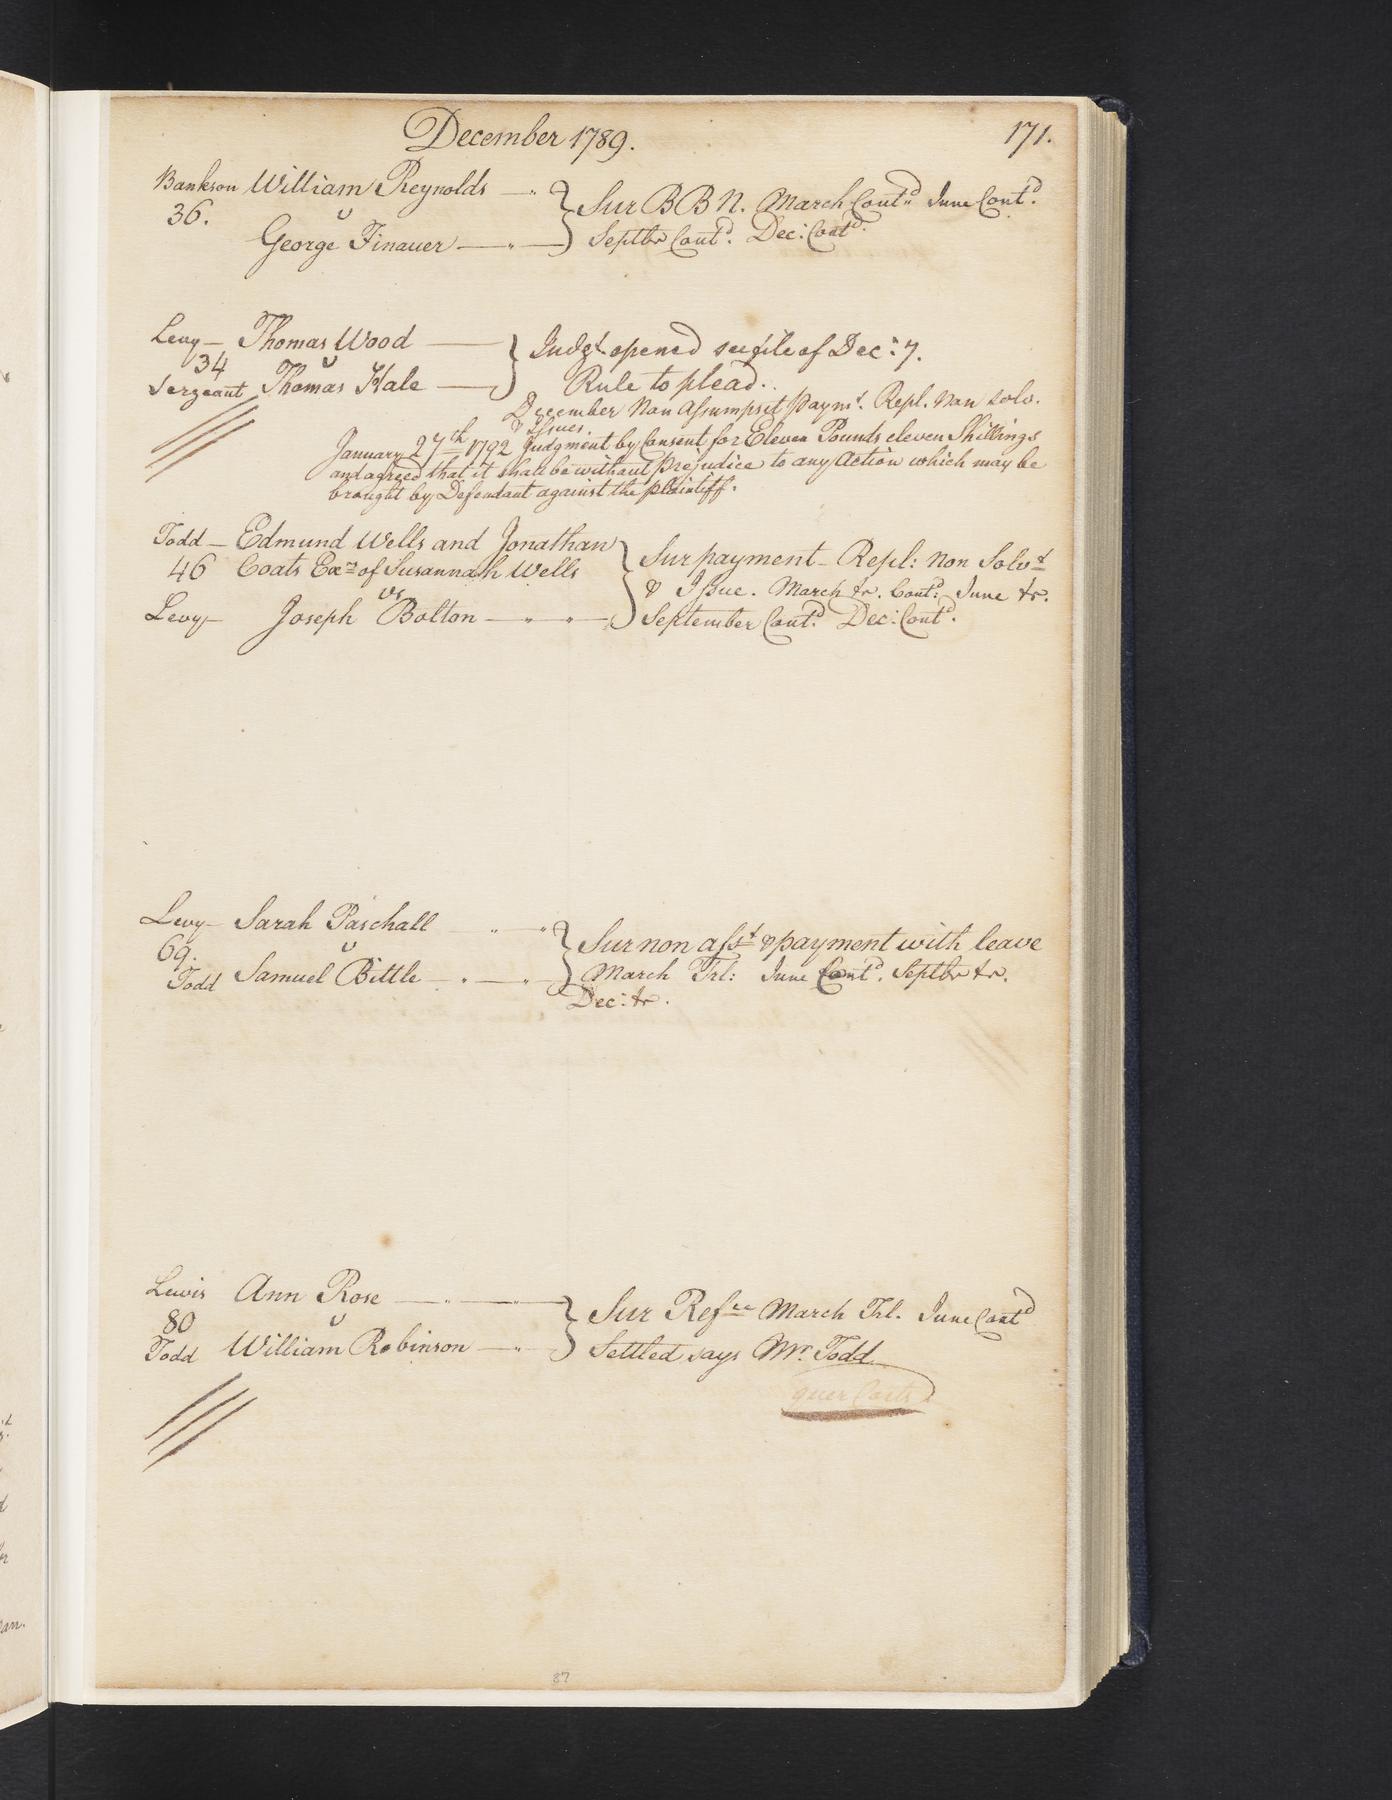 December 1789. 171.
Bankson William Reynolds — " } Sur BBN. March Contd. June Contd.
36. v
George Finauer — " — Septbr Contd. Dec: Contd.
Levy — Thomas Wood — } Judgt opened see file of Dec: 7.
34 v
Sergeant Thomas Hale — Rule to plead.
December Non Assumpsit paymt. Repl. Non Solv.
& Issues.
January 27th 1792 Judgment by Consent for Eleven Pounds eleven Shillings
and agreed that it shall be without prejudice to any Action which may be
brought by Defendant against the plaintiff.
Todd — Edmund Wells and Jonathan } Sur payment — Repl: Non Solvt
46 Coats Exrs of Susannah Wells & Issue. March tr. Contd: June tr.
vs
Levy — Joseph Bolton — " — " — September Contd. Dec: Contd.
Levy — Sarah Paschall " " } Sur non asst & payment with leave
69. v
Todd Samuel Bittle — " — " — March Trl: June Contd. Septbr tr.
Dec: tr.
Lewis Ann Rose — " — " — } Sur Refee March Trl. June Contd
80 v
Todd William Robinson — " — Settled says Mr. Todd
quer Costs
87